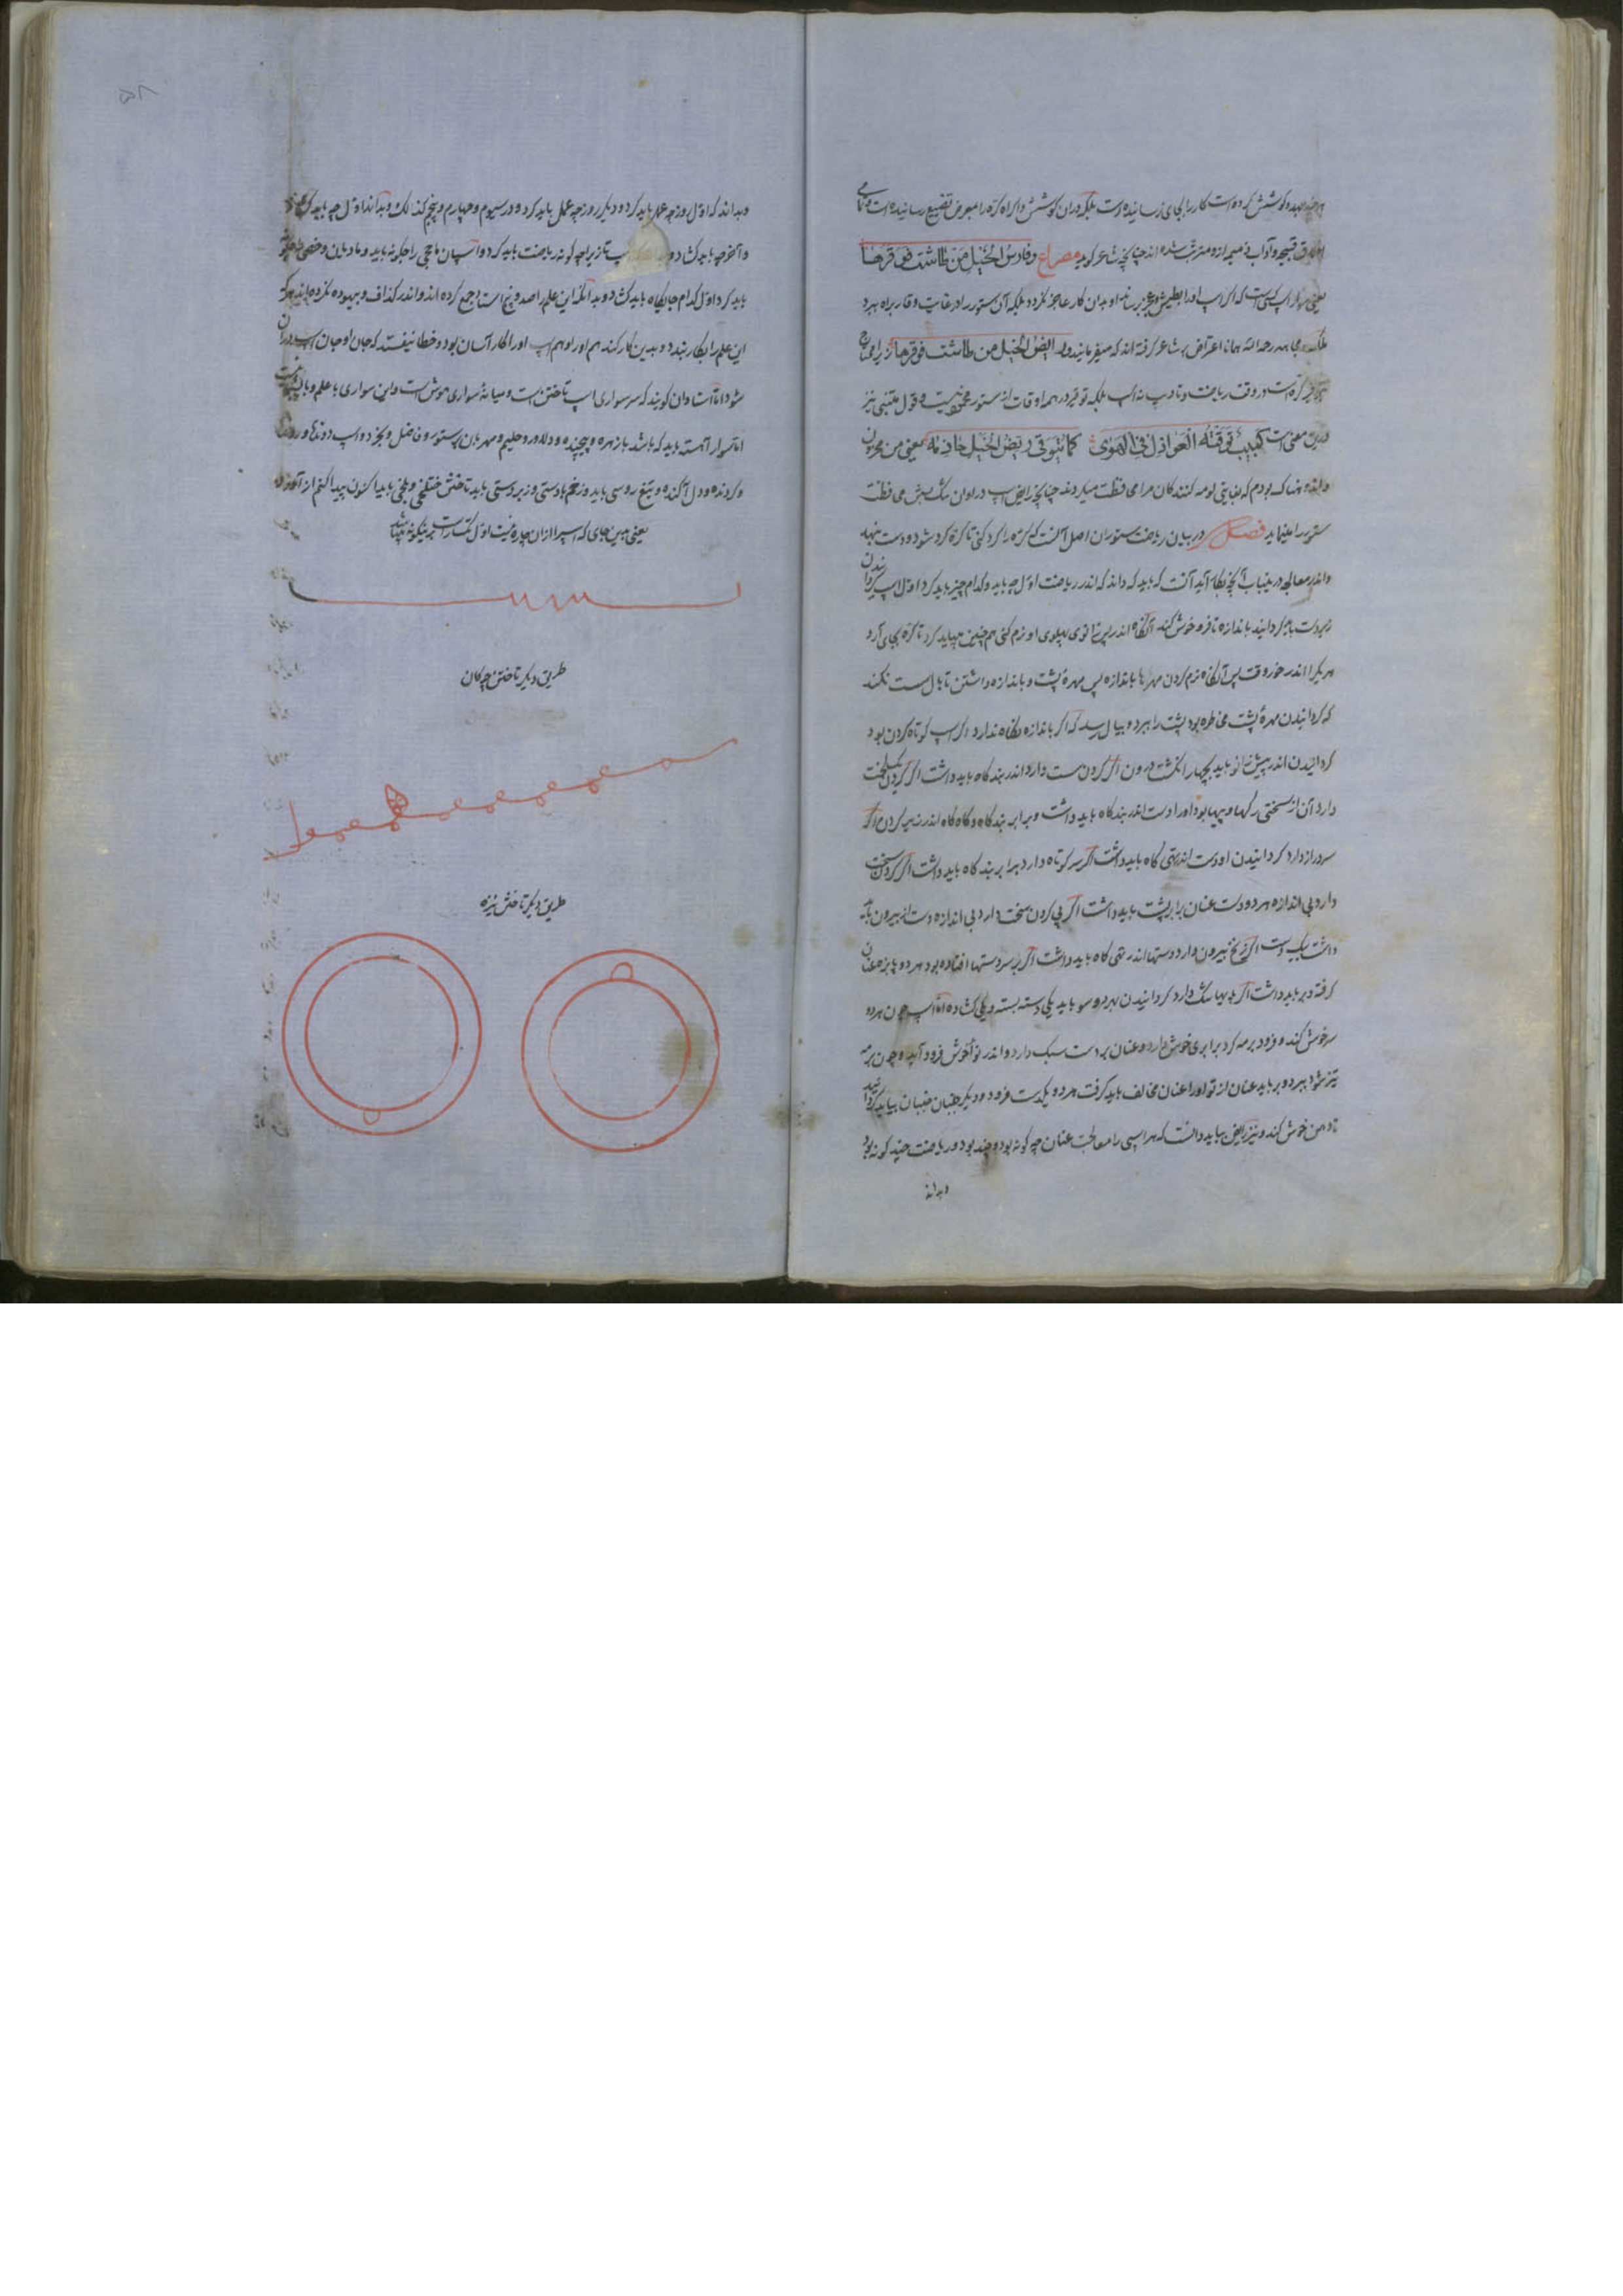 جهد و کوشش کرده است کار را بجای نرسانیده است بلکه دران کوشش و اکراه کره را بمعرض تضییع رسانیده است و تمامی
قبیحه و آداب ذمیمه ازو مترتب شده اند چنانچه شاعر کوید مصراع وفارس الخیل من طاشت فوقرها
یعنی سوار اسب کسی است که اکر اسب او را بطیش و عجز برساند او بدان کار عاجز نکردد بلکه آن ستور را در غایت وقار براه برد
رحمه الله همانا اعتراض بشاعر کرفته اند که میفرمایند و رایض الخیل من طاشت فوقرها زیرا که محتاج
توقیر کره است در وقت ریاضت و تادیب نه اسب بلکه توقیر در همه اوقات از ستور مختص نیست و قول متنبی نیز
درین معنی است کئیب توقته العواذل فی الهوی کما یتوقی ریض الخیل حازمه یعنی من محزون
و اندوهناک بودم که بغایتی لومه کنندکان مرا محافظت میکردند چنانچه رایض اسب در اوان سرکشیش محافظت
ستور را مینماید فصل در بیان ریاضت ستوران اصل آنست که کره را کرد کنی تا کره کرد شود و دست بنهد
و اندر معالجه درینباب آنچه بکار آید آنست که باید که داند که اندر ریاضت اول چه باید و کدام چیز باید کرد اول اسب کردانیدن
زبردست باید کردانید باندازه تا فره خوش کند آنکاه اندر پس زانوی پهلوی او نرم کنی همچنین میباید کرد تا کره بجای آرد
هر یکرا اندر خور وقت پس آنکاه نرم کردن مهرها باندازه پس مهرهٔ پشت و باندازه داشتن تا بال سست نکند
که کردانیدن مهرهٔ پشت مخاطره بود پشت را ببرد و ببال رسد که اکر باندازه نکاه ندارد اکر اسب کوتاه کردن بود
کردانیدن اندر پیش زانو باید بچهار انکشت درون اکر کردن سست دارد اندر بندکاه باید داشت اکر کردن یکلخت
دارد آن از سختی رکها و پیها بود او را دست اندر بندکاه باید داشت و برابر بندکاه و کاه کاه اندر زیر کردن اکر
سر دراز دارد کردانیدن او دست اندر تهی کاه باید داشت اکر سر کوتاه دارد برابر بندکاه باید داشت اکر کردن سخت
دارد بی اندازه هر دو دست عنان برابر پشت باید داشت اکر پی کردن سخت دارد بی اندازه دست از بیرون باید
داشت یک دست اکر زنخ بیرون دارد دستها اندر تهی کاه باید داشت اکر بر سر دستها افتاده بود هر دو پایزه عنان
کرفته و بر باید داشت اکر پهلوها تنک دارد کردانیدن بهر دو سو باید یکی دسته بسته و یکی کشاده اما اسب چون هر دو
سر خوش کند و زود برمه کرد برابری خوش دارد و عنان بر دست سبک دارد و اندر نوا خوش فرود آید و چون برمه
تیز شود ببرد و بر باید عنان از تو او را عنان مخالف باید کرفت هر دو یکدست فرود و دیگر جنبان جنبان بیاید کردانید
تا دهن خوش کند و نیز رایض بباید دانست که هر اسپی را معالجت عنان چه کونه بود و چند بود و ریاضت چند کونه بود
و بداند
۵۸
و بداند که اول روز چه عمل باید کرد و دیکر روز چه عمل باید کرد و در سیوم و چهارم و پنجم کذلک و بداند اول چه باید کرد
و آخر چه باید کشاد و اسب تازیرا چه کونه ریاضت باید کرد و اسپان ماچی را چکونه باید و مادیان و خصی را چکونه
باید کرد اول کدام جایکاه باید کشاد و بدانکه این علم را صد و پنج استاد جمع کرده اند و اندر کذاف و بیهوده نکرده اند هر که
این علم را بکار بندد و بدین کار کند هم او را و هم اسب او را کار آسان بود و خطا نیفتد که جان او و جان اسب در ان
شود اما استادان کویند که سر سواری اسب تاختن است و میانهٔ سواری هوش است و این سواری با علم و با ادبست
اما سوار آهسته باید که باشد با زهره و پیچنده و دلاور و حلیم و مهربان بر ستور و فاضل و بخرد و اسب دونده و رونده
و کردنده و دل آکنده و تیغ روسی باید و زخم بادستی و زبردستی باید تاختن ختلخی و بلخی باید اکنون پیدا کنم از آموزد
یعنی همین جای که اسپ را ازان چاره نیست اول کمترست برینکونه میتابند
طریق دیکر تاختن چوکان
طریق دیکر تاختن نیزه